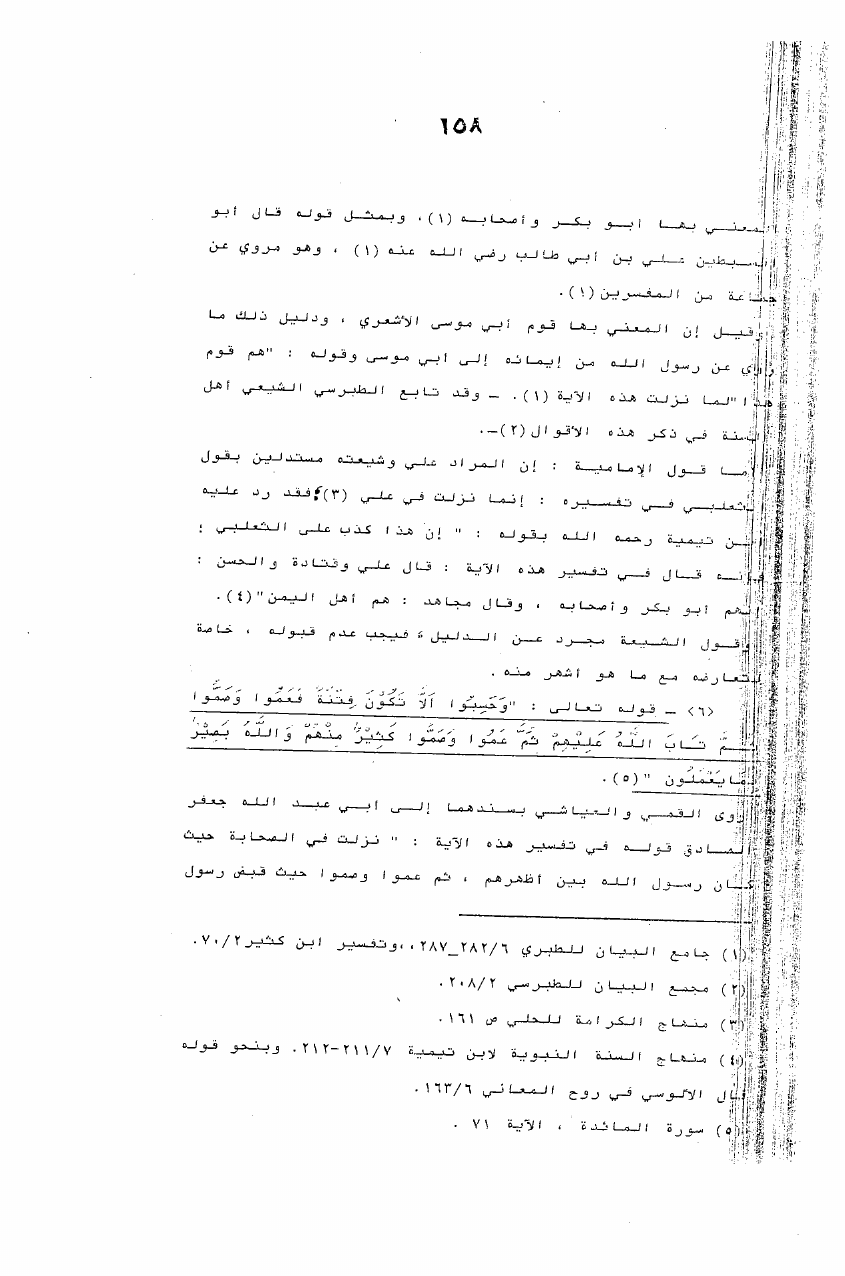 ١٥٨
المعني بها أبو بكر وأصحابه (١)، وبمثل قوله قال أبو
السبطين علي بن أبي طالب رضي الله عنه (١) ، وهو مروي عن
جماعة من المفسرين (١).
وقيل إن المعني بها قوم أبي موسى الأشعري ، ودليل ذلك ما
روي عن رسول الله من إيمائه إلى أبي موسى وقوله : "هم قوم
هذا" لما نزلت هذه الآية (١). ـ وقد تابع الطبرسي الشيعي أهل
السنة في ذكر هذه الأقوال (٢)ـ.
أما قول الإمامية : إن المراد علي وشيعته مستدلين بقول
الثعلبي في تفسيره : إنما نزلت في علي (٣) فقد رد عليه
ابن تيمية رحمه الله بقوله : " إن هذا كذب على الثعلبي ؛
فإنه قال في تفسير هذه الآية : قال علي وقتادة والحسن :
إنهم أبو بكر وأصحابه ، وقال مجاهد : هم أهل اليمن"(٤).
وقول الشيعة مجرد عن الدليل، فيجب عدم قبوله ، خاصة
لتعارضه مع ما هو أشهر منه.
<٦> ـ قوله تعالى : "وَحَسِبُوا أَلاَّ تَكُونَ فِتْنَةٌ فَعَمُوا وَصَمُّوا
ثُمَّ تَابَ اللَّهُ عَلَيْهِمْ ثُمَّ عَمُوا وَصَمُّوا كَثِيرٌ مِنْهُمْ وَاللَّهُ بَصِيرٌ
بِمَا يَعْمَلُونَ "(٥).
روى القمي والعياشي بسندهما إلى أبي عبد الله جعفر
الصادق قوله في تفسير هذه الآية : " نزلت في الصحابة حيث
كان رسول الله بين أظهرهم ، ثم عموا وصموا حيث قبض رسول
(١) جامع البيان للطبري ٢٨٢/٦_٢٨٧،، وتفسير ابن كثير ٧٠/٢.
(٢) مجمع البيان للطبرسي ٢٠٨/٢.
(٣) منهاج الكرامة للحلي ص ١٦١.
(٤) منهاج السنة النبوية لابن تيمية ٢١١/٧-٢١٢. وبنحو قوله
قال الألوسي في روح المعاني ١٦٣/٦.
(٥) سورة المائدة ، الآية ٧١ .